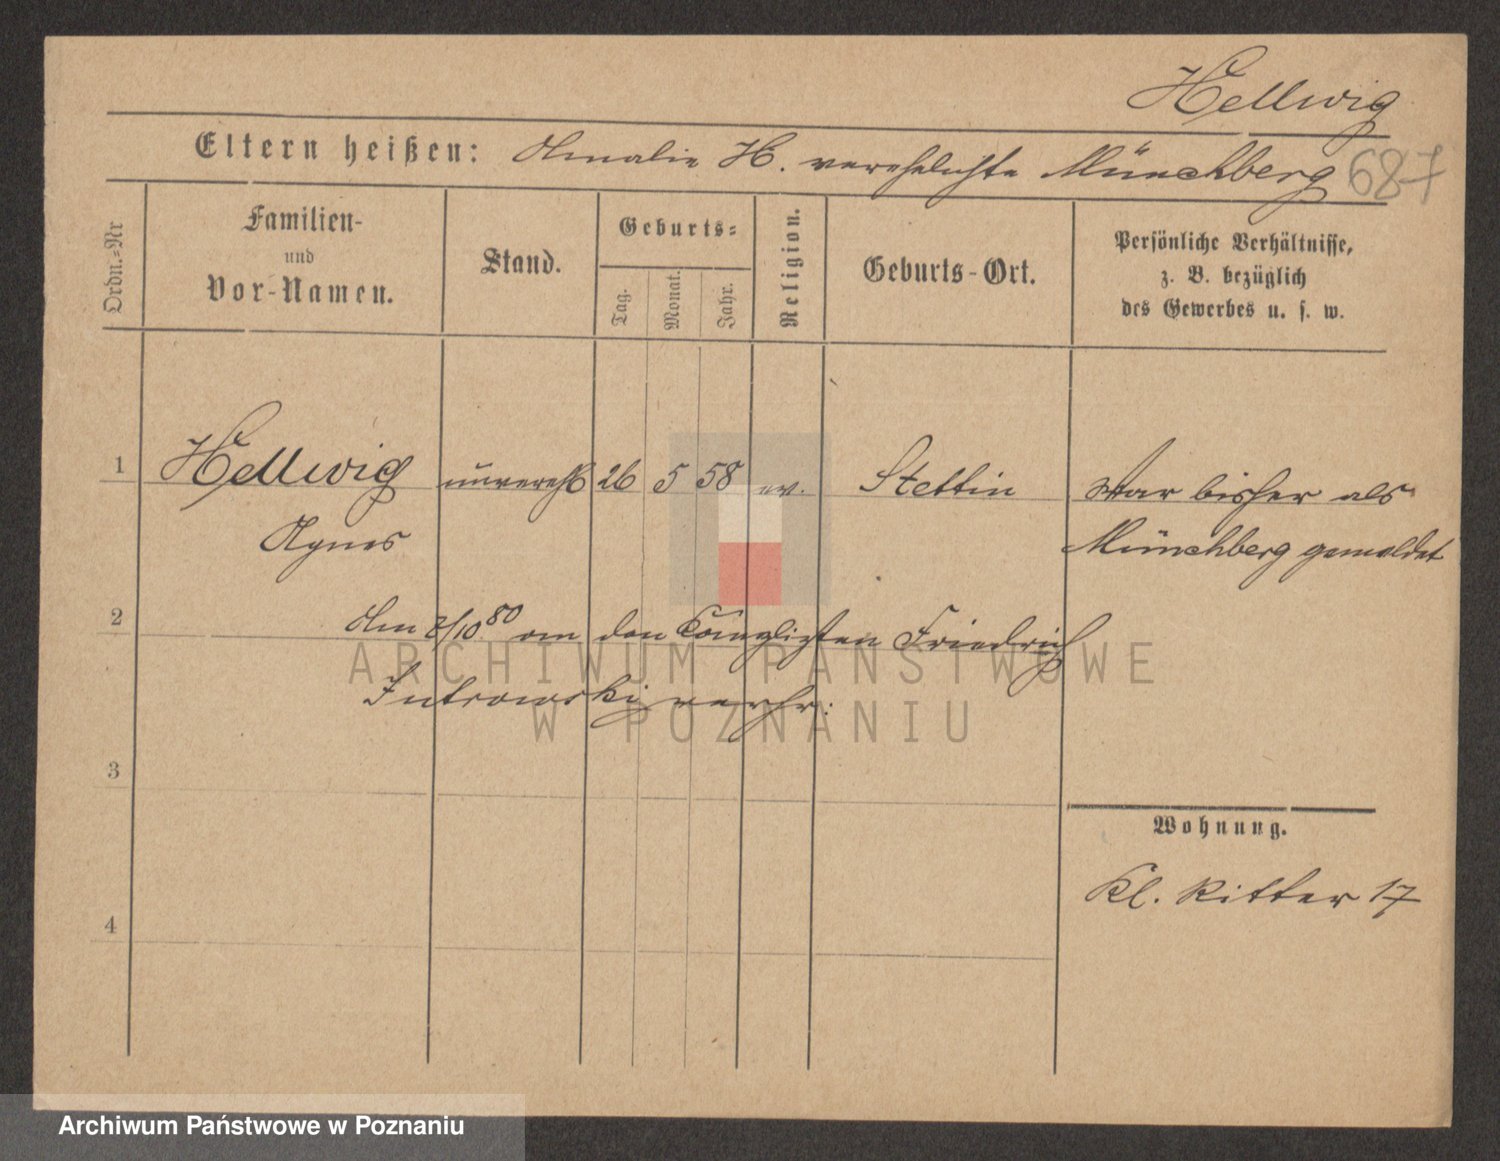 Hellwig
Eltern heißen: Amalie H. verehelichte Münchberg 687
Ordn.=Nr
Familien-
und
Vor-Namen.
Stand.
Geburts=
Tag.
Monat.
Jahr.
Religion.
Geburts-Ort.
Persönliche Verhältnisse,
z. B. bezüglich
des Gewerbes u. s. w.
1 Hellwig unverehl 26 5 58 ev. Stettin War bisher als
Agnes Münchberg gemeldet
2 Am 2/10.80 an den Friedrich
verehr:
ARCHIWUM PAŃSTWOWE
W POZNANIU
3
Wohnung.
Kl. Ritter 17
4
Archiwum Państwowe w Poznaniu